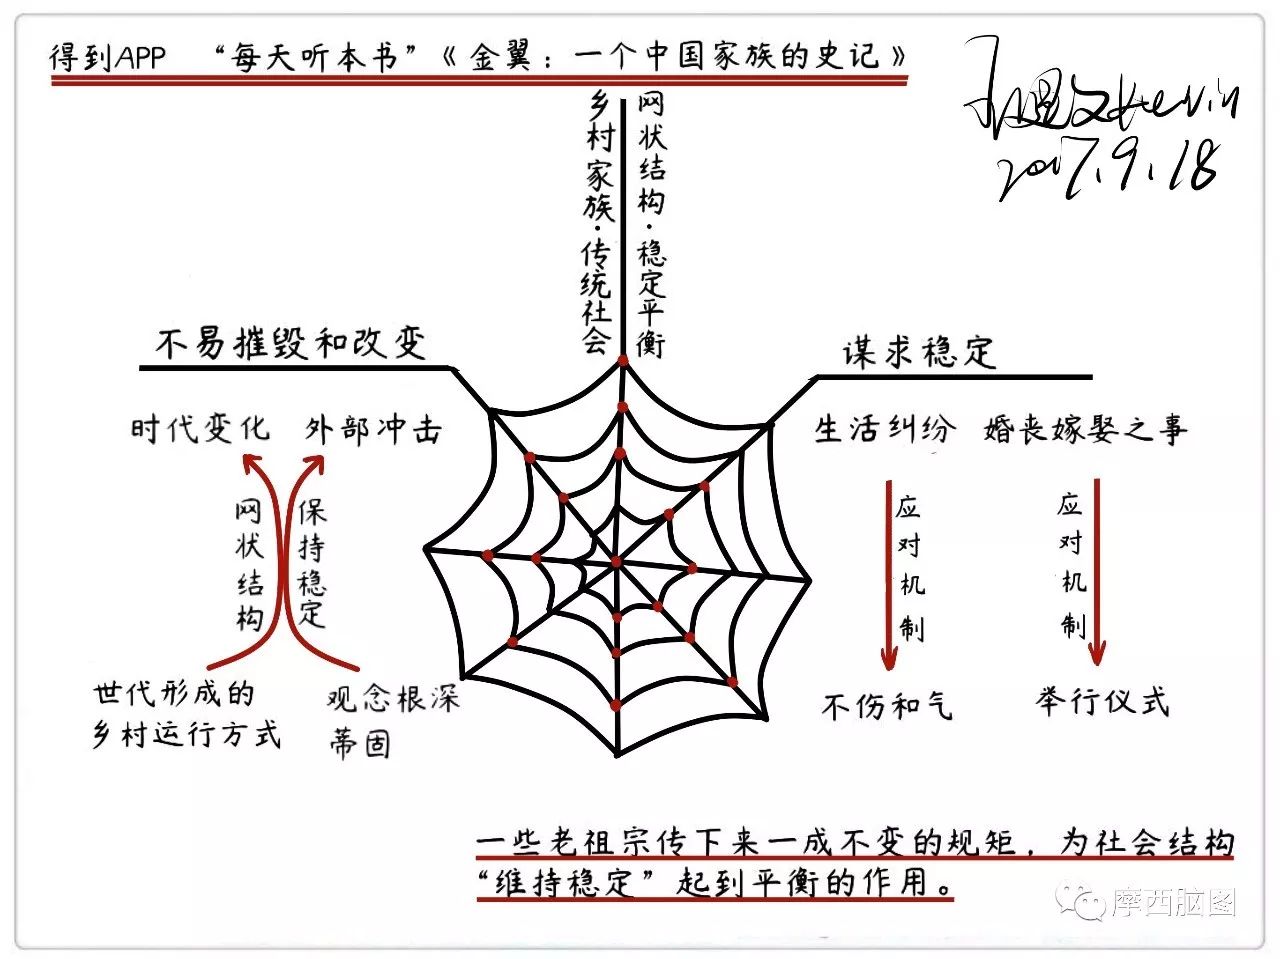 得到APP “每天听本书”《金翼：一个中国家族的史记》
文Kevin
2017.9.18
乡村家族·传统社会
网状结构·稳定平衡
不易摧毁和改变
时代变化 外部冲击
网状结构
保持稳定
世代形成的
乡村运行方式
观念根深
蒂固
谋求稳定
生活纠纷 婚丧嫁娶之事
应对机制
应对机制
不伤和气 举行仪式
一些老祖宗传下来一成不变的规矩，为社会结构
“维持稳定”起到平衡的作用。
摩西脑图